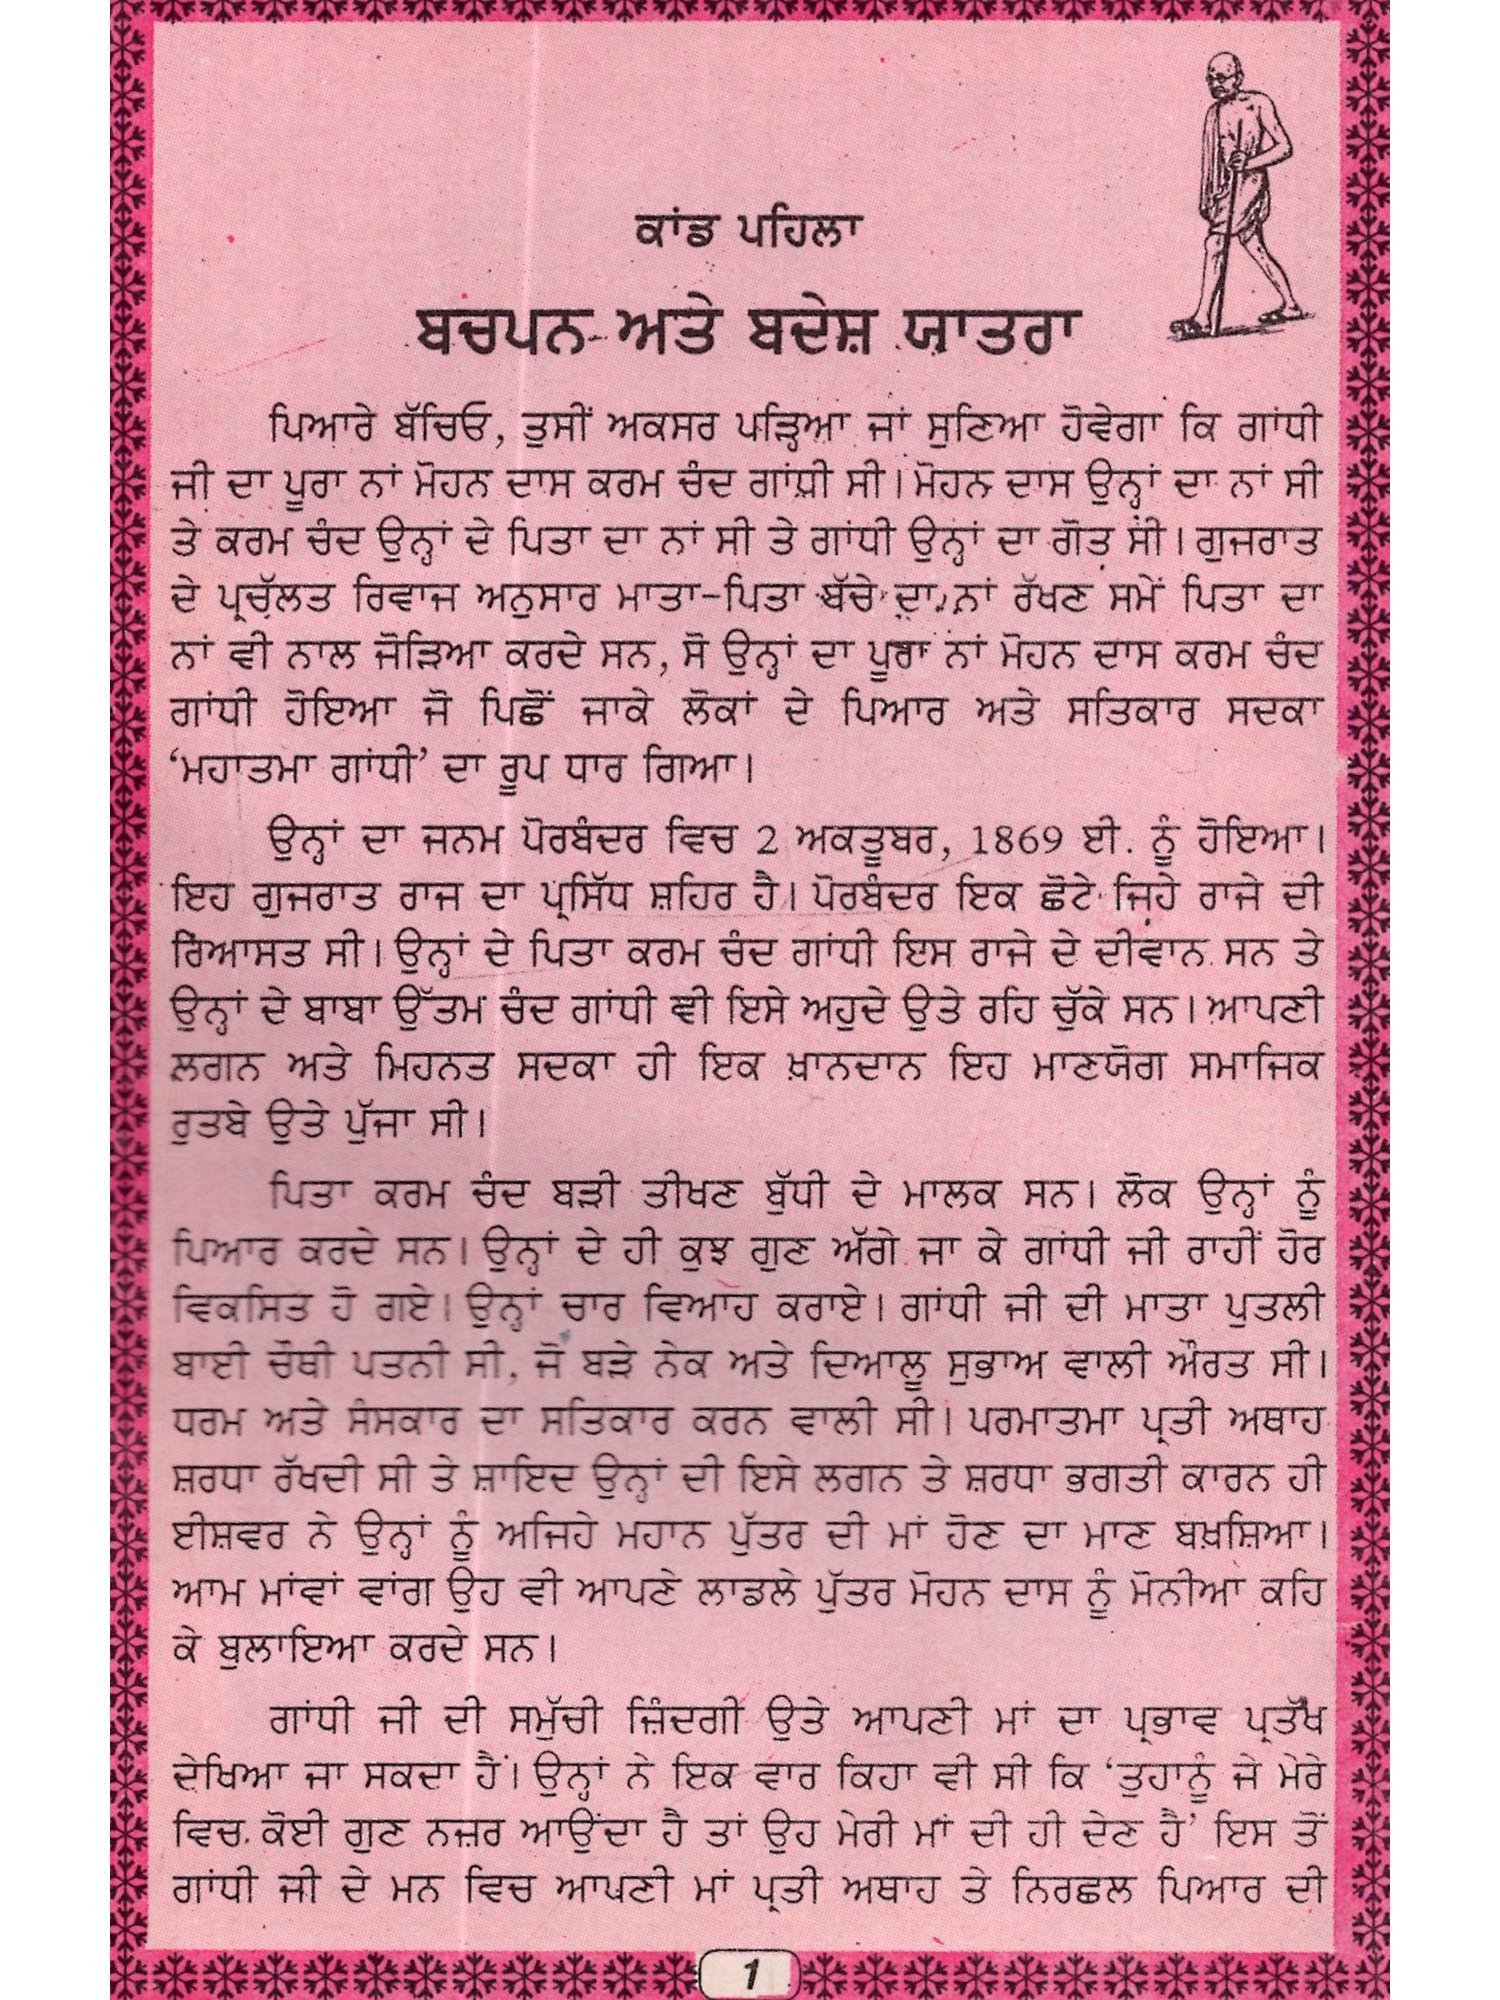 ਕਾਂਡ ਪਹਿਲਾ
ਬਚਪਨ ਅਤੇ ਬਦੇਸ਼ ਯਾਤਰਾ
ਪਿਆਰੇ ਬੱਚਿਓ, ਤੁਸੀਂ ਅਕਸਰ ਪੜ੍ਹਿਆ ਜਾਂ ਸੁਣਿਆ ਹੋਵੇਗਾ ਕਿ ਗਾਂਧੀ
ਜੀ ਦਾ ਪੂਰਾ ਨਾਂ ਮੋਹਨ ਦਾਸ ਕਰਮ ਚੰਦ ਗਾਂਧੀ ਸੀ। ਮੋਹਨ ਦਾਸ ਉਨ੍ਹਾਂ ਦਾ ਨਾਂ ਸੀ
ਤੇ ਕਰਮ ਚੰਦ ਉਨ੍ਹਾਂ ਦੇ ਪਿਤਾ ਦਾ ਨਾਂ ਸੀ ਤੇ ਗਾਂਧੀ ਉਨ੍ਹਾਂ ਦਾ ਗੋਤ ਸੀ। ਗੁਜਰਾਤ
ਦੇ ਪ੍ਰਚੱਲਤ ਰਿਵਾਜ ਅਨੁਸਾਰ ਮਾਤਾ-ਪਿਤਾ ਬੱਚੇ ਦਾ ਨਾਂ ਰੱਖਣ ਸਮੇਂ ਪਿਤਾ ਦਾ
ਨਾਂ ਵੀ ਨਾਲ ਜੋੜਿਆ ਕਰਦੇ ਸਨ, ਸੋ ਉਨ੍ਹਾਂ ਦਾ ਪੂਰਾ ਨਾਂ ਮੋਹਨ ਦਾਸ ਕਰਮ ਚੰਦ
ਗਾਂਧੀ ਹੋਇਆ ਜੋ ਪਿਛੋਂ ਜਾਕੇ ਲੋਕਾਂ ਦੇ ਪਿਆਰ ਅਤੇ ਸਤਿਕਾਰ ਸਦਕਾ
‘ਮਹਾਤਮਾ ਗਾਂਧੀ’ ਦਾ ਰੂਪ ਧਾਰ ਗਿਆ।
ਉਨ੍ਹਾਂ ਦਾ ਜਨਮ ਪੋਰਬੰਦਰ ਵਿਚ 2 ਅਕਤੂਬਰ, 1869 ਈ. ਨੂੰ ਹੋਇਆ।
ਇਹ ਗੁਜਰਾਤ ਰਾਜ ਦਾ ਪ੍ਰਸਿੱਧ ਸ਼ਹਿਰ ਹੈ। ਪੋਰਬੰਦਰ ਇਕ ਛੋਟੇ ਜਿਹੇ ਰਾਜੇ ਦੀ
ਰਿਆਸਤ ਸੀ। ਉਨ੍ਹਾਂ ਦੇ ਪਿਤਾ ਕਰਮ ਚੰਦ ਗਾਂਧੀ ਇਸ ਰਾਜੇ ਦੇ ਦੀਵਾਨ ਸਨ ਤੇ
ਉਨ੍ਹਾਂ ਦੇ ਬਾਬਾ ਉੱਤਮ ਚੰਦ ਗਾਂਧੀ ਵੀ ਇਸੇ ਅਹੁਦੇ ਉਤੇ ਰਹਿ ਚੁੱਕੇ ਸਨ। ਆਪਣੀ
ਲਗਨ ਅਤੇ ਮਿਹਨਤ ਸਦਕਾ ਹੀ ਇਕ ਖ਼ਾਨਦਾਨ ਇਹ ਮਾਣਯੋਗ ਸਮਾਜਿਕ
ਰੁਤਬੇ ਉਤੇ ਪੁੱਜਾ ਸੀ।
ਪਿਤਾ ਕਰਮ ਚੰਦ ਬੜੀ ਤੀਖਣ ਬੁੱਧੀ ਦੇ ਮਾਲਕ ਸਨ। ਲੋਕ ਉਨ੍ਹਾਂ ਨੂੰ
ਪਿਆਰ ਕਰਦੇ ਸਨ। ਉਨ੍ਹਾਂ ਦੇ ਹੀ ਕੁਝ ਗੁਣ ਅੱਗੇ ਜਾ ਕੇ ਗਾਂਧੀ ਜੀ ਰਾਹੀਂ ਹੋਰ
ਵਿਕਸਿਤ ਹੋ ਗਏ। ਉਨ੍ਹਾਂ ਚਾਰ ਵਿਆਹ ਕਰਾਏ। ਗਾਂਧੀ ਜੀ ਦੀ ਮਾਤਾ ਪੁਤਲੀ
ਬਾਈ ਚੌਥੀ ਪਤਨੀ ਸੀ, ਜੋ ਬੜੇ ਨੇਕ ਅਤੇ ਦਿਆਲੂ ਸੁਭਾਅ ਵਾਲੀ ਔਰਤ ਸੀ।
ਧਰਮ ਅਤੇ ਸੰਸਕਾਰ ਦਾ ਸਤਿਕਾਰ ਕਰਨ ਵਾਲੀ ਸੀ। ਪਰਮਾਤਮਾ ਪ੍ਰਤੀ ਅਥਾਹ
ਸ਼ਰਧਾ ਰੱਖਦੀ ਸੀ ਤੇ ਸ਼ਾਇਦ ਉਨ੍ਹਾਂ ਦੀ ਇਸੇ ਲਗਨ ਤੇ ਸ਼ਰਧਾ ਭਗਤੀ ਕਾਰਨ ਹੀ
ਈਸ਼ਵਰ ਨੇ ਉਨ੍ਹਾਂ ਨੂੰ ਅਜਿਹੇ ਮਹਾਨ ਪੁੱਤਰ ਦੀ ਮਾਂ ਹੋਣ ਦਾ ਮਾਣ ਬਖ਼ਸ਼ਿਆ।
ਆਮ ਮਾਂਵਾਂ ਵਾਂਗ ਉਹ ਵੀ ਆਪਣੇ ਲਾਡਲੇ ਪੁੱਤਰ ਮੋਹਨ ਦਾਸ ਨੂੰ ਮੋਨੀਆ ਕਹਿ
ਕੇ ਬੁਲਾਇਆ ਕਰਦੇ ਸਨ।
ਗਾਂਧੀ ਜੀ ਦੀ ਸਮੁੱਚੀ ਜ਼ਿੰਦਗੀ ਉਤੇ ਆਪਣੀ ਮਾਂ ਦਾ ਪ੍ਰਭਾਵ ਪ੍ਰਤੱਖ
ਦੇਖਿਆ ਜਾ ਸਕਦਾ ਹੈ। ਉਨ੍ਹਾਂ ਨੇ ਇਕ ਵਾਰ ਕਿਹਾ ਵੀ ਸੀ ਕਿ ‘ਤੁਹਾਨੂੰ ਜੇ ਮੇਰੇ
ਵਿਚ ਕੋਈ ਗੁਣ ਨਜ਼ਰ ਆਉਂਦਾ ਹੈ ਤਾਂ ਉਹ ਮੇਰੀ ਮਾਂ ਦੀ ਹੀ ਦੇਣ ਹੈ’ ਇਸ ਤੋਂ
ਗਾਂਧੀ ਜੀ ਦੇ ਮਨ ਵਿਚ ਆਪਣੀ ਮਾਂ ਪ੍ਰਤੀ ਅਥਾਹ ਤੇ ਨਿਰਛਲ ਪਿਆਰ ਦੀ
1